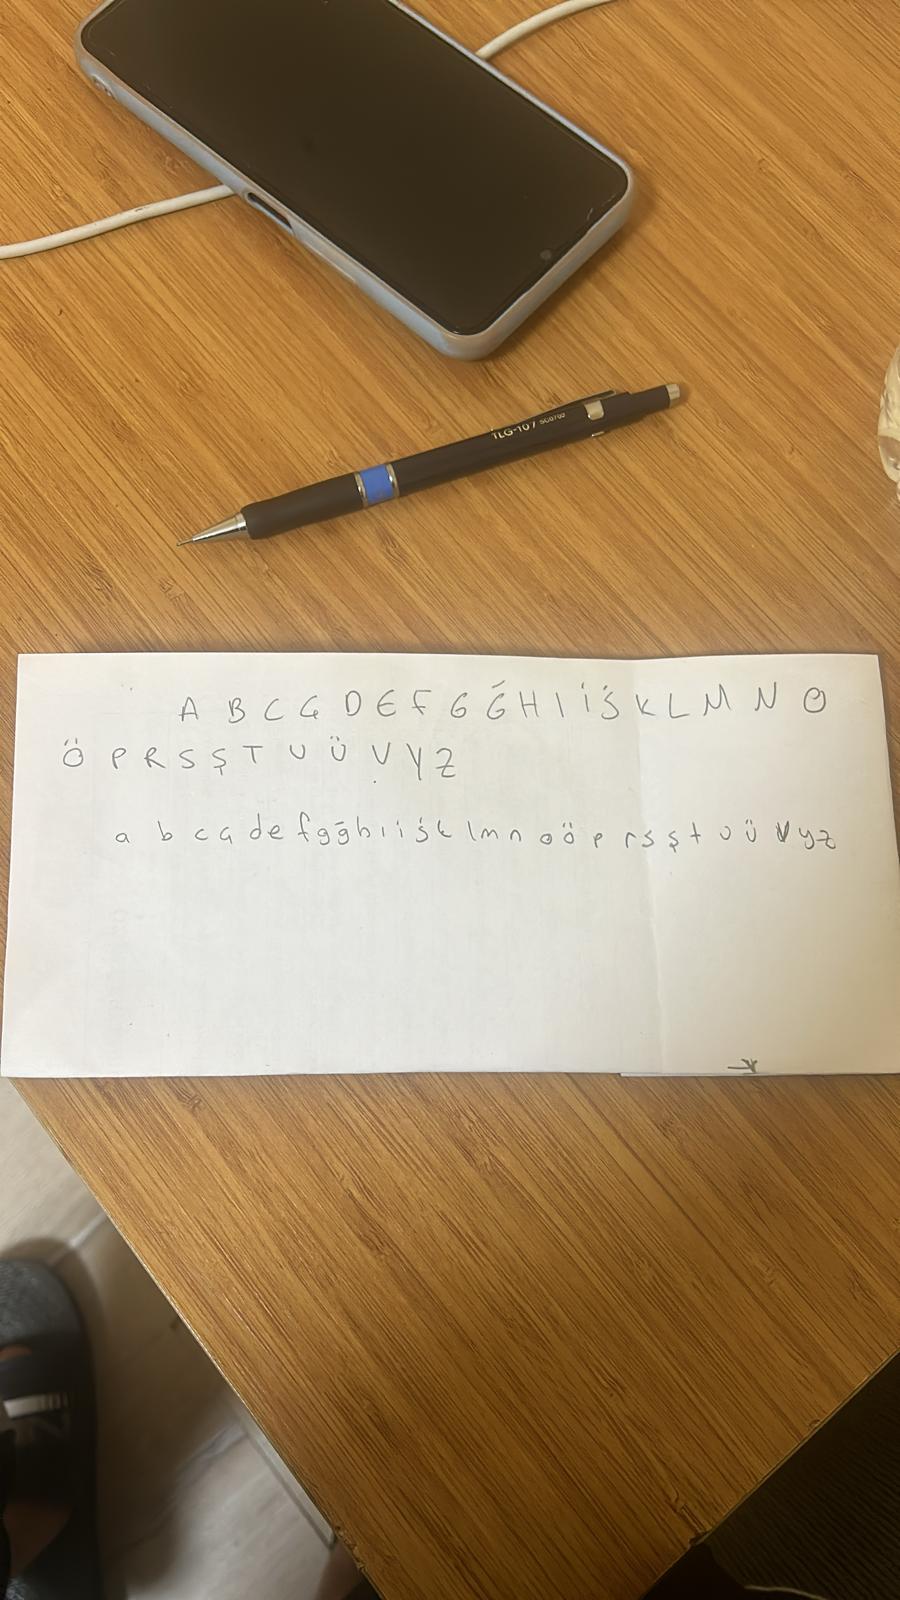 TLG-107 SC0702
A B C Ç D E F G Ğ H I İ J K L M N O
Ö P R S Ş T U Ü V Y Z
a b c ç d e f g ğ h ı i j k l m n o ö p r s ş t u ü v y z